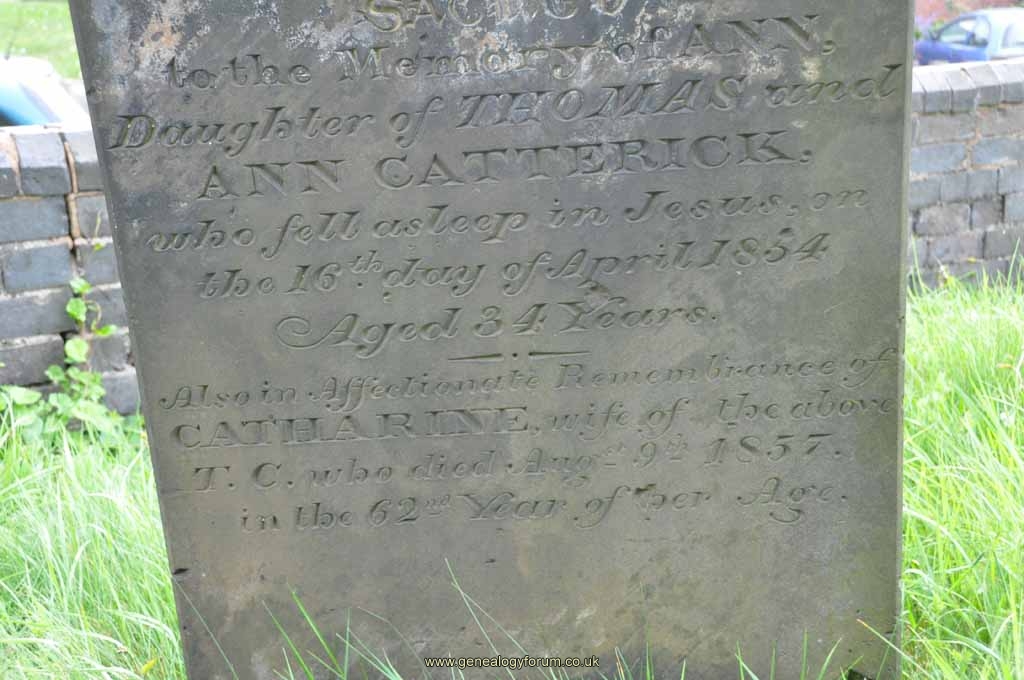 SACRED
to the Memory of ANN,
Daughter of THOMAS and
ANN CATTERICK,
who fell asleep in Jesus, on
the 16th day of April 1854
Aged 34 Years.
Also in Affectionate Remembrance of
CATHARINE, wife of the above
T. C. who died Augst 9th 1857.
in the 62nd Year of her Age.
www.genealogyforum.co.uk